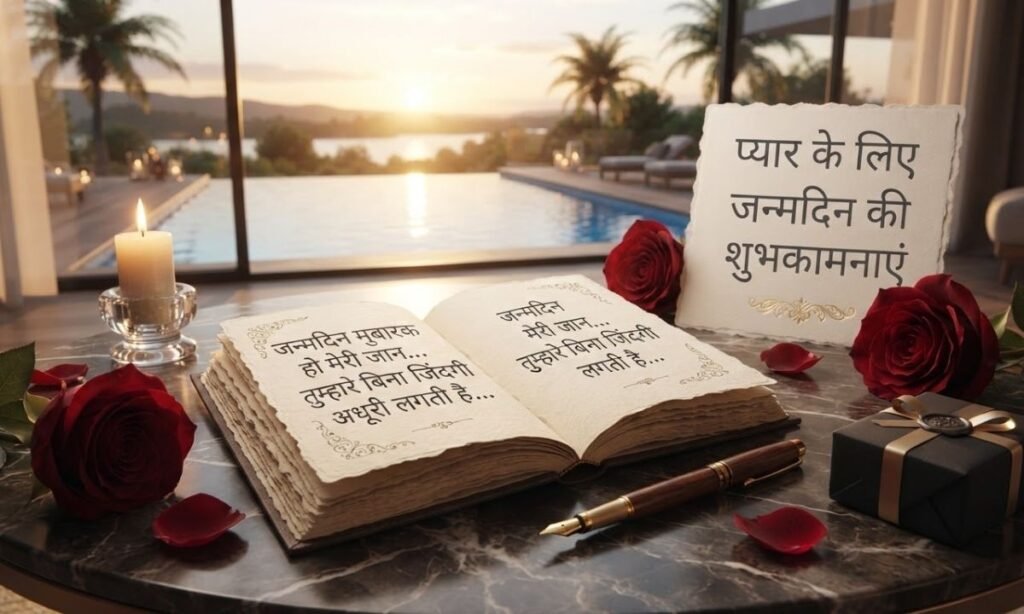 जन्मदिन मुबारक
हो मेरी जान...
तुम्हारे बिना जिंदगी
अधूरी लगती है...
जन्मदिन
मेरी जान...
तुम्हारे बिना जिंदगी
लगती है...
प्यार के लिए
जन्मदिन की
शुभकामनाएं